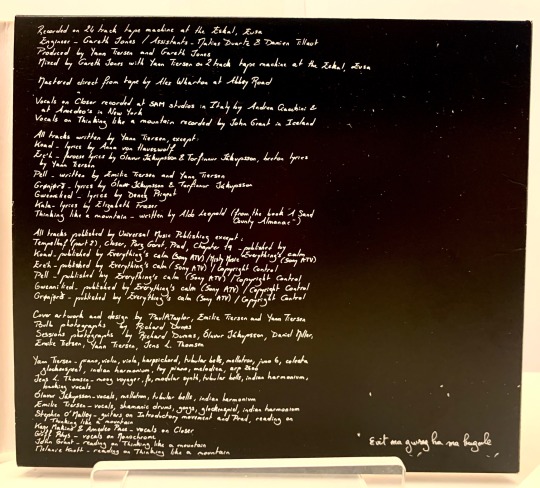 Recorded on 24 track tape machine at the Eskal, Eusa
Engineer - Gareth Jones / Assistants - Matias Duarte & Damien Tillaut
Produced by Yann Tiersen and Gareth Jones
Mixed by Gareth Jones with Yann Tiersen on 2 track tape machine at the Eskal, Eusa
Mastered direct from tape by Alex Wharton at Abbey Road
Vocals on Closer recorded at SAM studios in Italy by Andrea &
at Amedeo's in New York
Vocals on Thinking like a mountain recorded by John Grant in Iceland
All tracks written by Yann Tiersen, except:
Koad - lyrics by Anna von Hausswolf
Erc'h - faroese lyrics by Ólavur Jákupsson & Torfinnur Jákupsson, breton lyrics
by Yann Tiersen
Pell - written by Emilie Tiersen and Yann Tiersen
Gronjørð - lyrics by Ólavur Jákupsson & Torfinnur Jákupsson
Gwennilied - lyrics by Denez Prigent
Kala - lyrics by Elizabeth Fraser
Thinking like a mountain - written by Aldo Leopold (from the book "A Sand
County Almanac")
All tracks published by Universal Music Publishing except:
Tempelhof (part 2), Closer, Porz Goret, Prad, Chapter 19 - published by
Everything's calm
Koad - published by Everything's calm (Sony ATV) / (Sony ATV)
Erc'h - published by Everything's calm (Sony ATV) / Copyright Control
Pell - published by Everything's calm (Sony ATV) / Copyright Control
Gwennilied - published by Everything's calm (Sony ATV) / Copyright Control
Gronjørð - published by Everything's calm (Sony ATV) / Copyright Control
Cover artwork and design by Paul A Taylor, Emilie Tiersen and Yann Tiersen
photographs by Richard Dumas
Sessions photographs by Richard Dumas, Ólavur Jákupsson, Daniel Miller,
Emilie Tiersen, Yann Tiersen, Jens L. Thomsen
Yann Tiersen - piano, violin, viola, harpsichord, tubular bells, mellotron, juno 6, celesta
glockenspiel, indian harmonium, toy piano, melodica, arp 2600
Jens L. Thomsen - moog voyager, fx, modular synth, tubular bells, indian harmonium,
backing vocals
Ólavur Jákupsson - vocals, mellotron, tubular bells, indian harmonium
Emilie Tiersen - vocals, shamanic drums, gongs, glockenspiel, indian harmonium
Stephen O'Malley - guitars on Introductory movement and Prad, reading on
Thinking like a mountain
& Amedeo Pace - vocals on Closer
Gruff Rhys - vocals on Monochrome
John Grant - reading on Thinking like a mountain
Melanie Knott - reading on Thinking like a mountain
Evit ma gwreg ha ma bugale